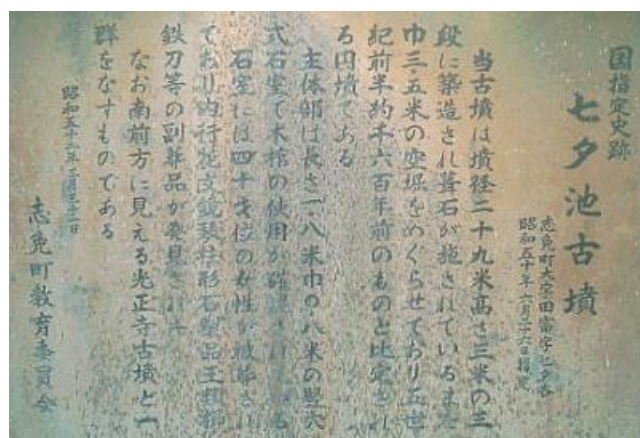 国指定史跡
七夕池古墳
志免町大字田富字七夕谷
昭和五十年六月二十六日指定
当古墳は墳径二十九米高さ三米の三
段に築造され葺石が施されているまた
巾三・五米の空堀をめぐらせており五世
紀前半約千六百年前のものと比定され
る円墳である
主体部は長さ一・八米巾〇・八米の竪穴
式石室で木棺の使用が確認され
石室には四十才位の女性が被葬され
ており内行花文鏡琴柱形石製品玉類
鉄刀等の副葬品が発見された
なお南前方に見える光正寺古墳と一
群をなすものである
昭和五十二年三月三十一日
志免町教育委員会